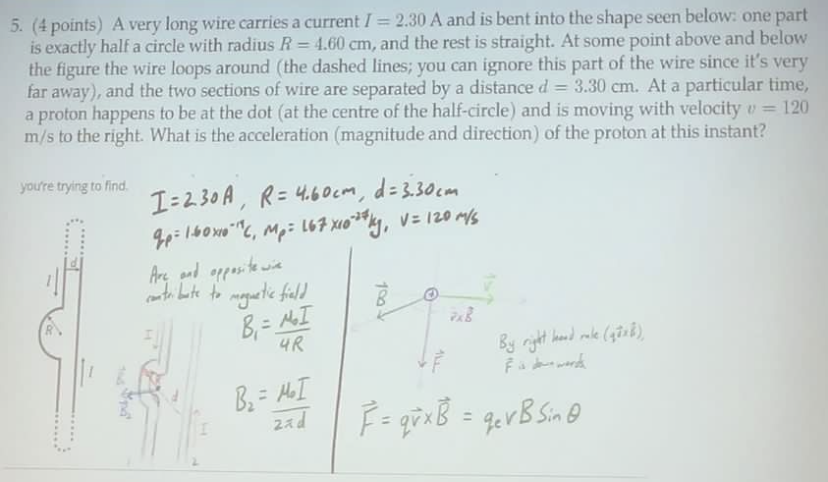 5. (4 points) A very long wire carries a current I = 2.30 A and is bent into the shape seen below: one part
is exactly half a circle with radius R = 4.60 cm, and the rest is straight. At some point above and below
the figure the wire loops around (the dashed lines; you can ignore this part of the wire since it's very
far away), and the two sections of wire are separated by a distance d = 3.30 cm. At a particular time,
a proton happens to be at the dot (at the centre of the half-circle) and is moving with velocity v = 120
m/s to the right. What is the acceleration (magnitude and direction) of the proton at this instant?
you're trying to find.
I = 2.30 A, R = 4.60cm, d = 3.30cm
qp = 1.60x10^-19 C, Mp = 1.67 x10^-27 kg, V = 120 m/s
Arc and opposite wire
contribute to magnetic field
B₁ = μ₀I / 4R
B₂ = μ₀I / 2πd
d
I
R
I
I
d
I
B
v
v x B
F
By right hand rule (qv x B),
F is downwards
F = qv x B = qevB Sin θ